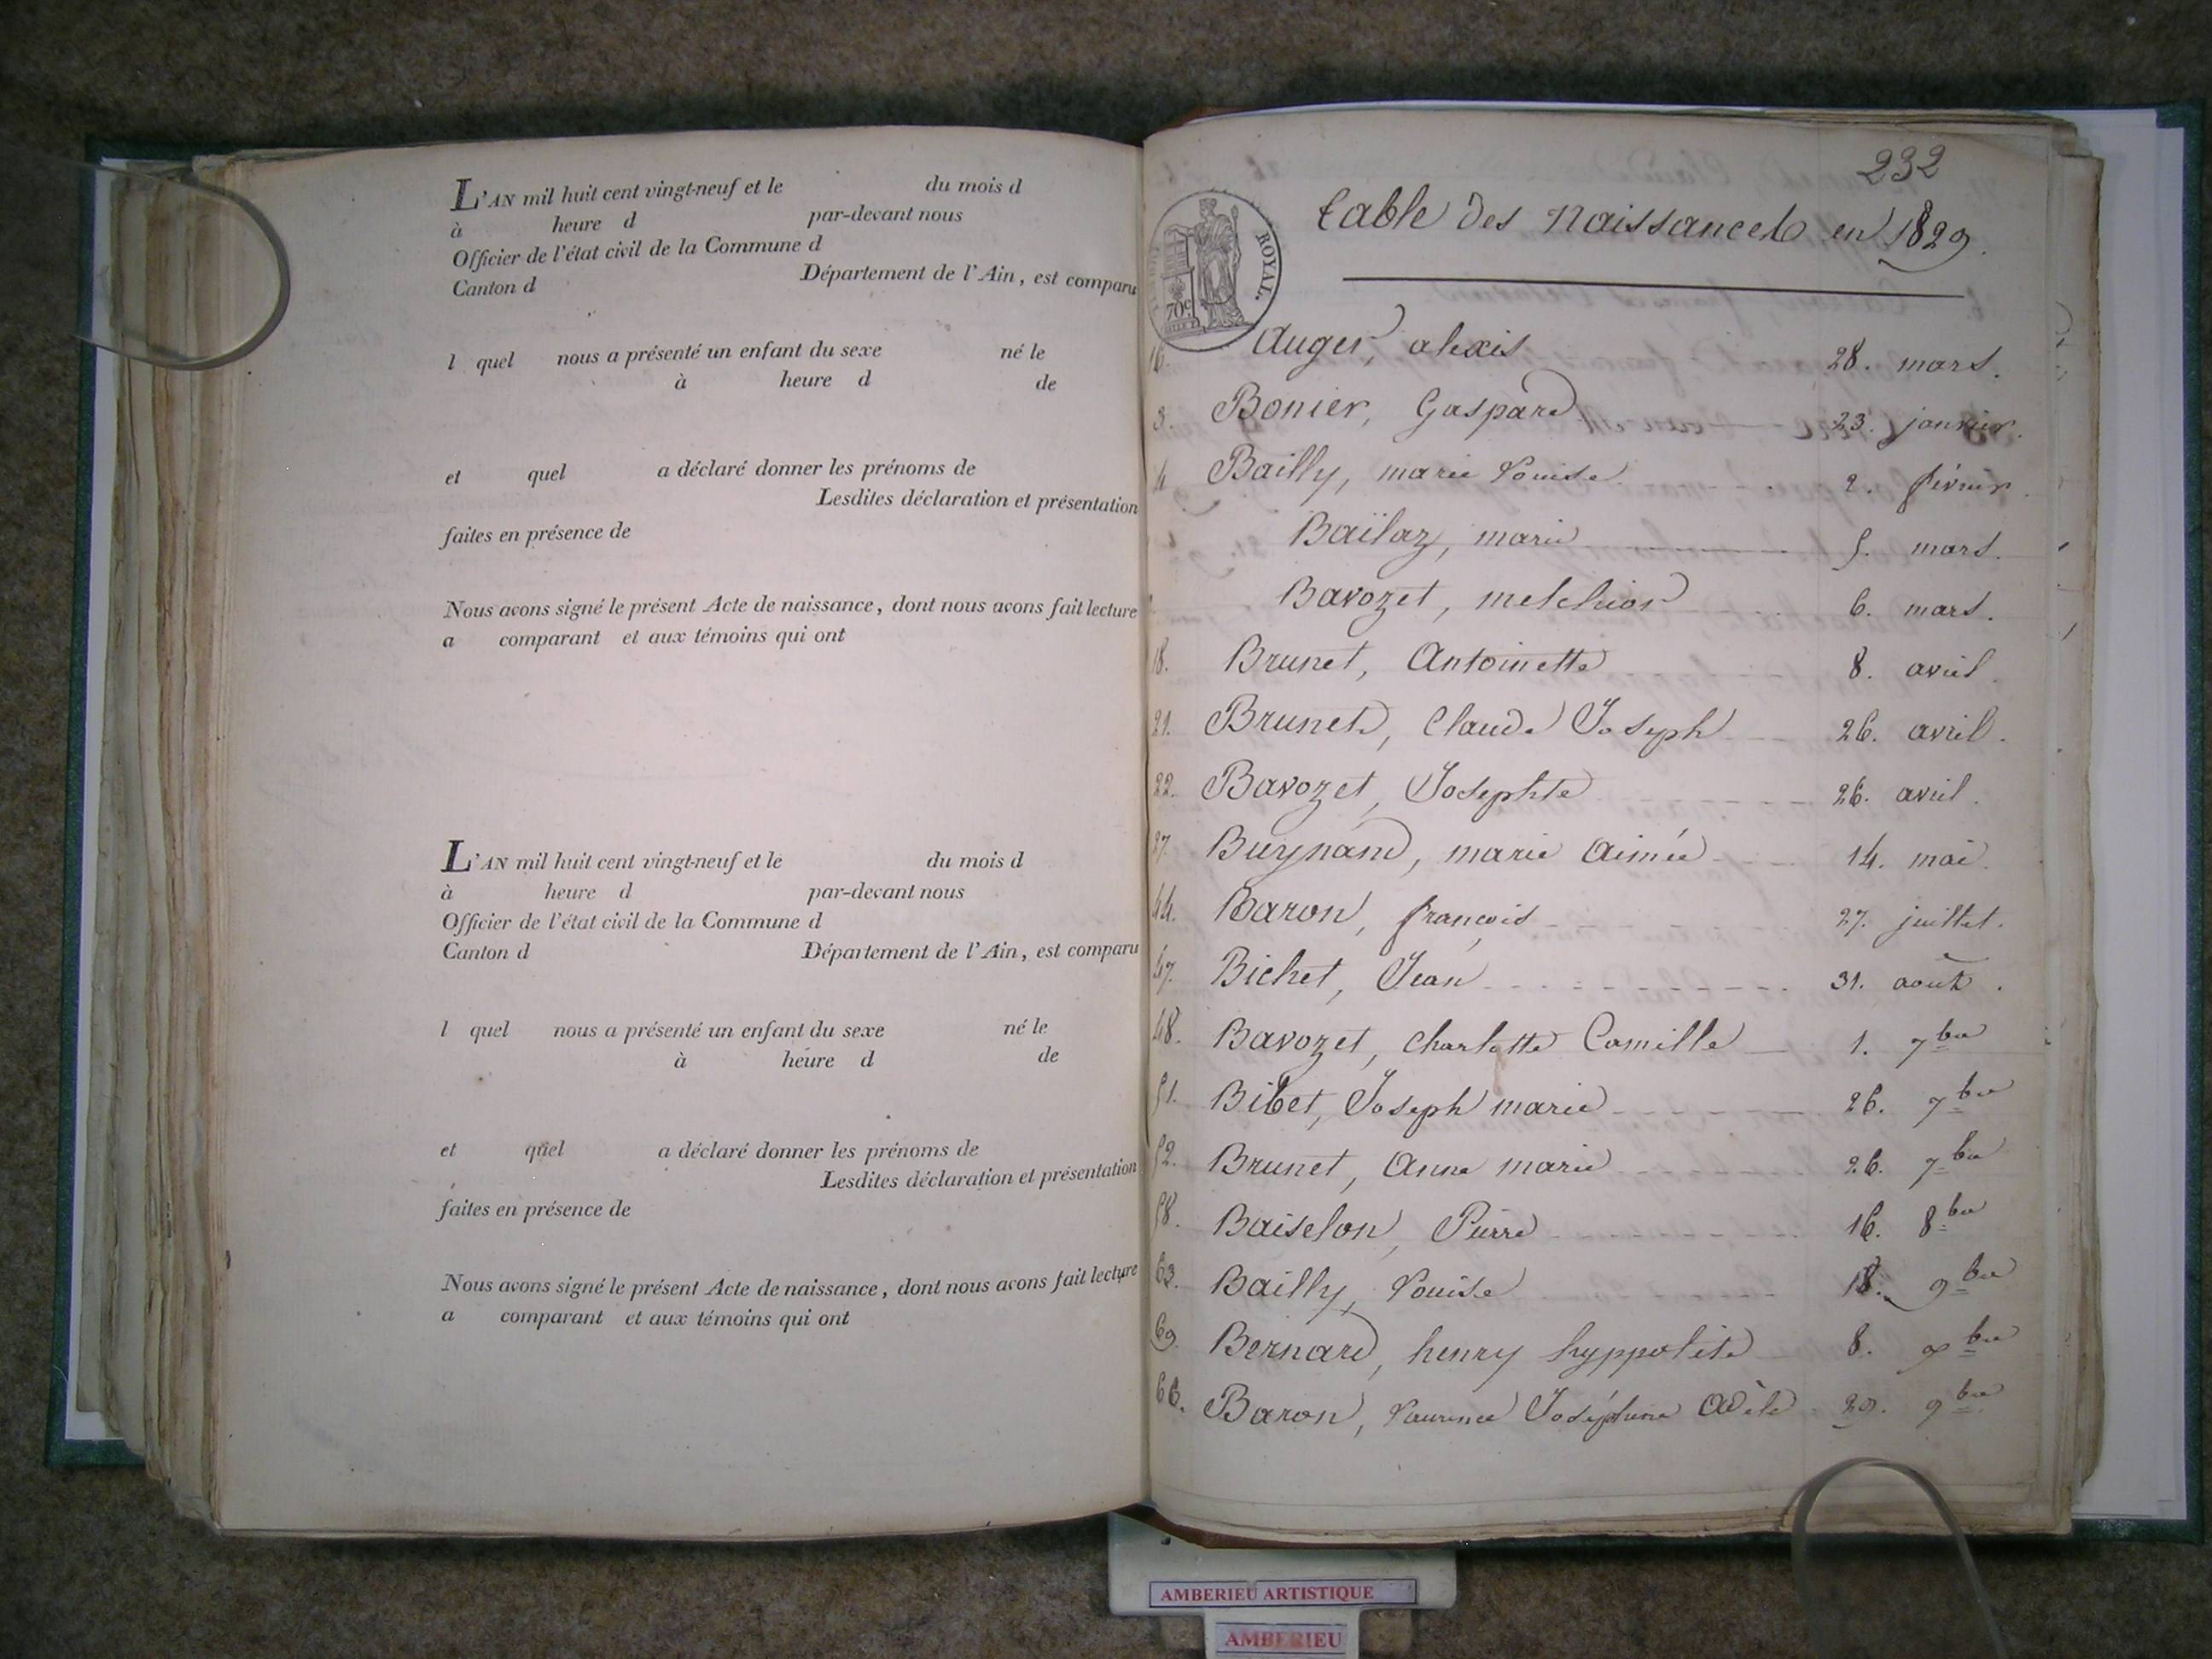 L'AN mil huit cent vingt-neuf et le du mois d
à heure d par-devant nous
Officier de l'état civil de la Commune d
Canton d Département de l'Ain, est comparu
l quel nous a présenté un enfant du sexe né le
à heure d de
et quel a déclaré donner les prénoms de
Lesdites déclaration et présentation
faites en présence de
Nous avons signé le présent Acte de naissance, dont nous avons fait lecture
a comparant et aux témoins qui ont
L'AN mil huit cent vingt-neuf et le du mois d
à heure d par-devant nous
Officier de l'état civil de la Commune d
Canton d Département de l'Ain, est comparu
l quel nous a présenté un enfant du sexe né le
à heure d de
et quel a déclaré donner les prénoms de
Lesdites déclaration et présentation
faites en présence de
Nous avons signé le présent Acte de naissance, dont nous avons fait lecture
a comparant et aux témoins qui ont
232
Table des Naissances en 1829.
ROYAL.
70c
16. Auger, alexis 28. mars.
3. Bonier, Gaspard 23. janvier.
4 Bailly, marie Louise 2. février.
Baïlaz, marie 5. mars.
Bavozet, melchior 6. mars.
18. Brunet, Antoinette 8. avril.
21. Brunet, Claude Joseph 26. avril.
22. Bavozet, Josephte 26. avril.
27. Buynand, marie Aimée 14. mai.
44. Baron, françois 27. juillet.
47. Bichet, Jean 31. août.
48. Bavozet, Charlotte Camille 1. 7bre
51. Bibet, Joseph marie 26. 7bre
52. Brunet, Anne marie 26. 7bre
58. Baiselon, Pierre 16. 8bre
63. Bailly, Louise 18. 9bre
69. Bernard, henry hyppolite 8. bre
66. Baron, Laurence Joséphine Adèle 29. 9bre
AMBERIEU ARTISTIQUE
AMBERIEU